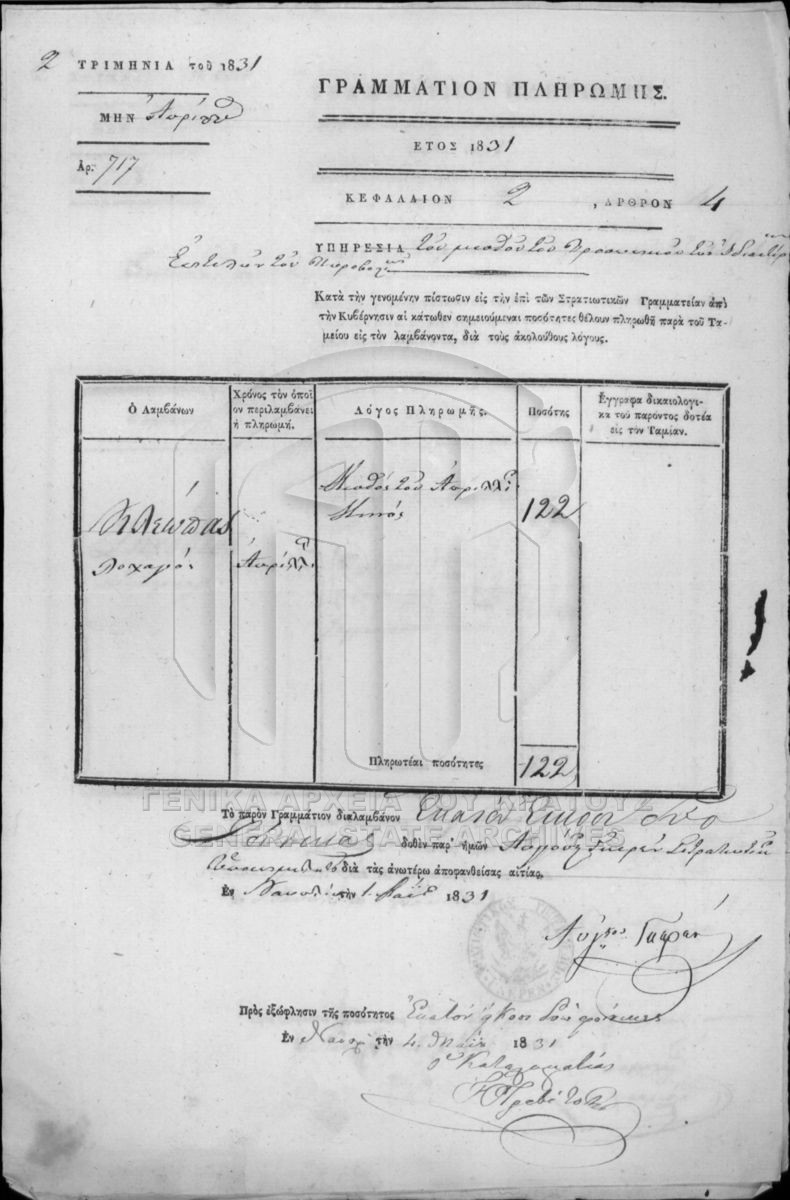 2 ΤΡΙΜΗΝΙΑ τοῦ 1831
ΜΗΝ Ἀπρίλλ
Ἀρ. 717
ΓΡΑΜΜΑΤΙΟΝ ΠΛΗΡΩΜΗΣ.
ΕΤΟΣ 1831
ΚΕΦΑΛΑΙΟΝ 2 , ΑΡΘΡΟΝ 4
ΥΠΗΡΕΣΙΑ τοῦ μισθοῦ τοῦ
τοῦ Πυροβολ
Κατὰ τὴν γενομένην πίστωσιν εἰς τὴν ἐπὶ τῶν Στρατιωτικῶν Γραμματείαν ἀπὸ
τὴν Κυβέρνησιν αἱ κάτωθεν σημειούμεναι ποσότητες θέλουν πληρωθῆ παρὰ τοῦ Τα-
μείου εἰς τὸν λαμβάνοντα, διὰ τοὺς ἀκολούθους λόγους.
Ὁ Λαμβάνων
Χρόνος τὸν ὁποῖ
ον περιλαμβάνει
ἡ πληρωμή.
Λόγος Πληρωμῆς.
Ποσότης
Ἔγγραφα δικαιολογι-
κὰ τοῦ παρόντος δοτέα
εἰς τὸν Ταμίαν.
Μισθὸς τοῦ Ἀπριλλί
Μηνός
122
Κλεώπας
λοχαγός
Ἀπρίλλ
Πληρωτέαι ποσότητες
122
ΓΕΝΙΚΑ ΑΡΧΕΙΑ ΤΟΥ ΚΡΑΤΟΥΣ
Τὸ παρὸν Γραμμάτιον διαλαμβάνον Ἑκατὸν Εἴκοσι δύο
GENERAL STATE ARCHIVES
Φοίνικας δοθὲν παρ' ἡμῶν
διὰ τὰς ἀνωτέρω ἀποφανθείσας αἰτίας.
Ἐν Ναυπλίῳ τὴν 1 Μαΐ 1831
Πρὸς ἐξώφλησιν τῆς ποσότητος Ἑκατὸν ἤκοσι δύω φοίνικες
Ἐν Ναυπ τὴν 4 Μαΐ 1831